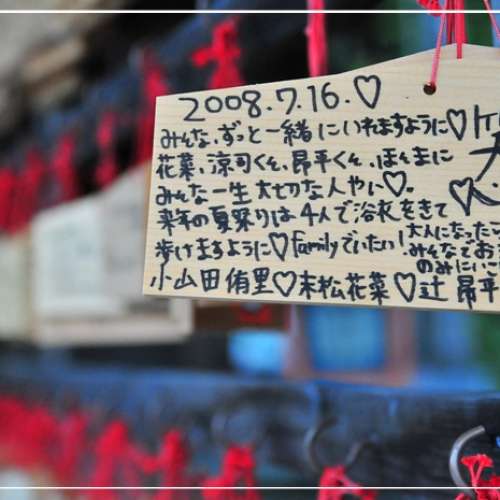 2008.7.16.♡
みんな、ずっと一緒にいれますように♡
花菜、涼司くん、昂平くん、ほんまに
みんな一生大切な人やに♡。
来年の夏祭りは4人で浴衣をきて
歩けますように♡familyでいたい!
大人になったら
みんなでお
のみにいこ
小山田侑里♡末松花菜♡辻 昂平